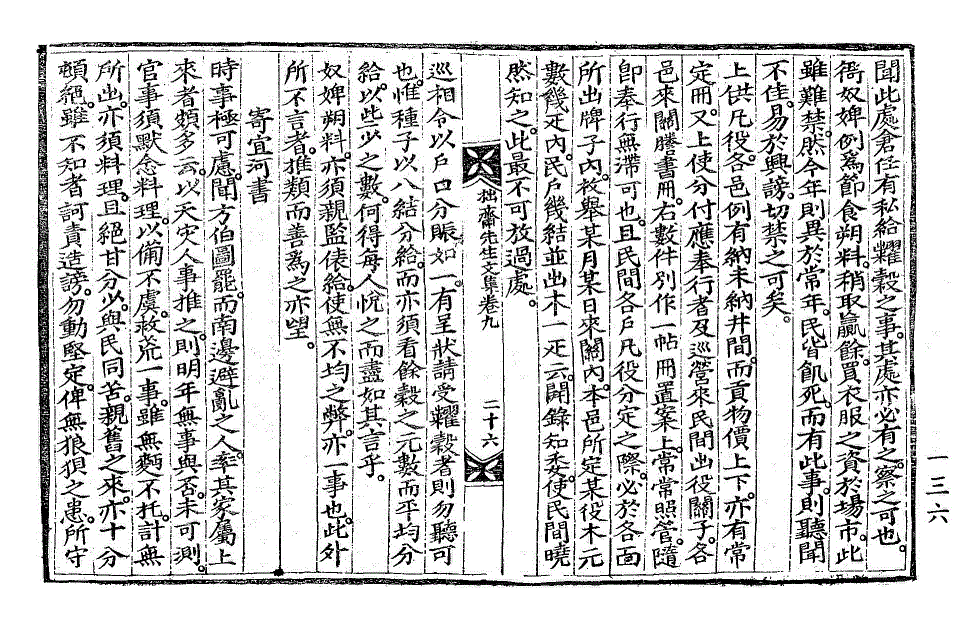 聞此處倉任有私給糶穀之事。其處亦必有之。察之可也。
衙奴婢例爲節食朔料。稍取贏餘。買衣服之資於場市。此
雖難禁。然今年則異於常年。民皆飢死。而有此事。則聽聞
不佳。易於興謗。切禁之可矣。
上供凡役。各邑例有納未納井間。而貢物價上下。亦有常
定冊。又上使分付應奉行者及巡營來民間出役關子。各
邑來關謄書冊。右數件別作一帖冊置案上。常常照管。隨
卽奉行無滯可也。且民間各戶凡役分定之際。必於各面
所出牌子內。枚擧某月某日來關內。本邑所定某役木元
數幾疋內。民戶幾結並出木一疋云。開錄知委。使民間曉
然知之。此最不可放過處。
拙齋先生文集卷九
二十六
巡相令以戶口分賑如一。有呈狀請受糶穀者則勿聽可
也。惟種子以八結分給。而亦須看餘穀之元數而平均分
給。以些少之數。何得每人悅之而盡如其言乎。
奴婢朔料。亦須親監俵給。使無不均之弊。亦一事也。此外
所不言者。推類而善爲之亦望。
寄宜河書
時事極可慮。聞方伯圖罷。而南邊避亂之人。率其家屬上
來者頗多云。以天灾人事推之。則明年無事與否。未可測。
官事須默念料理。以備不虞。救荒一事。雖無麪不托。計無
所出。亦須料理。且絕甘分少。與民同苦。親舊之來。亦十分
頓絕。雖不知者訶責造謗。勿動堅定。俾無狼狽之患。所守
一三六